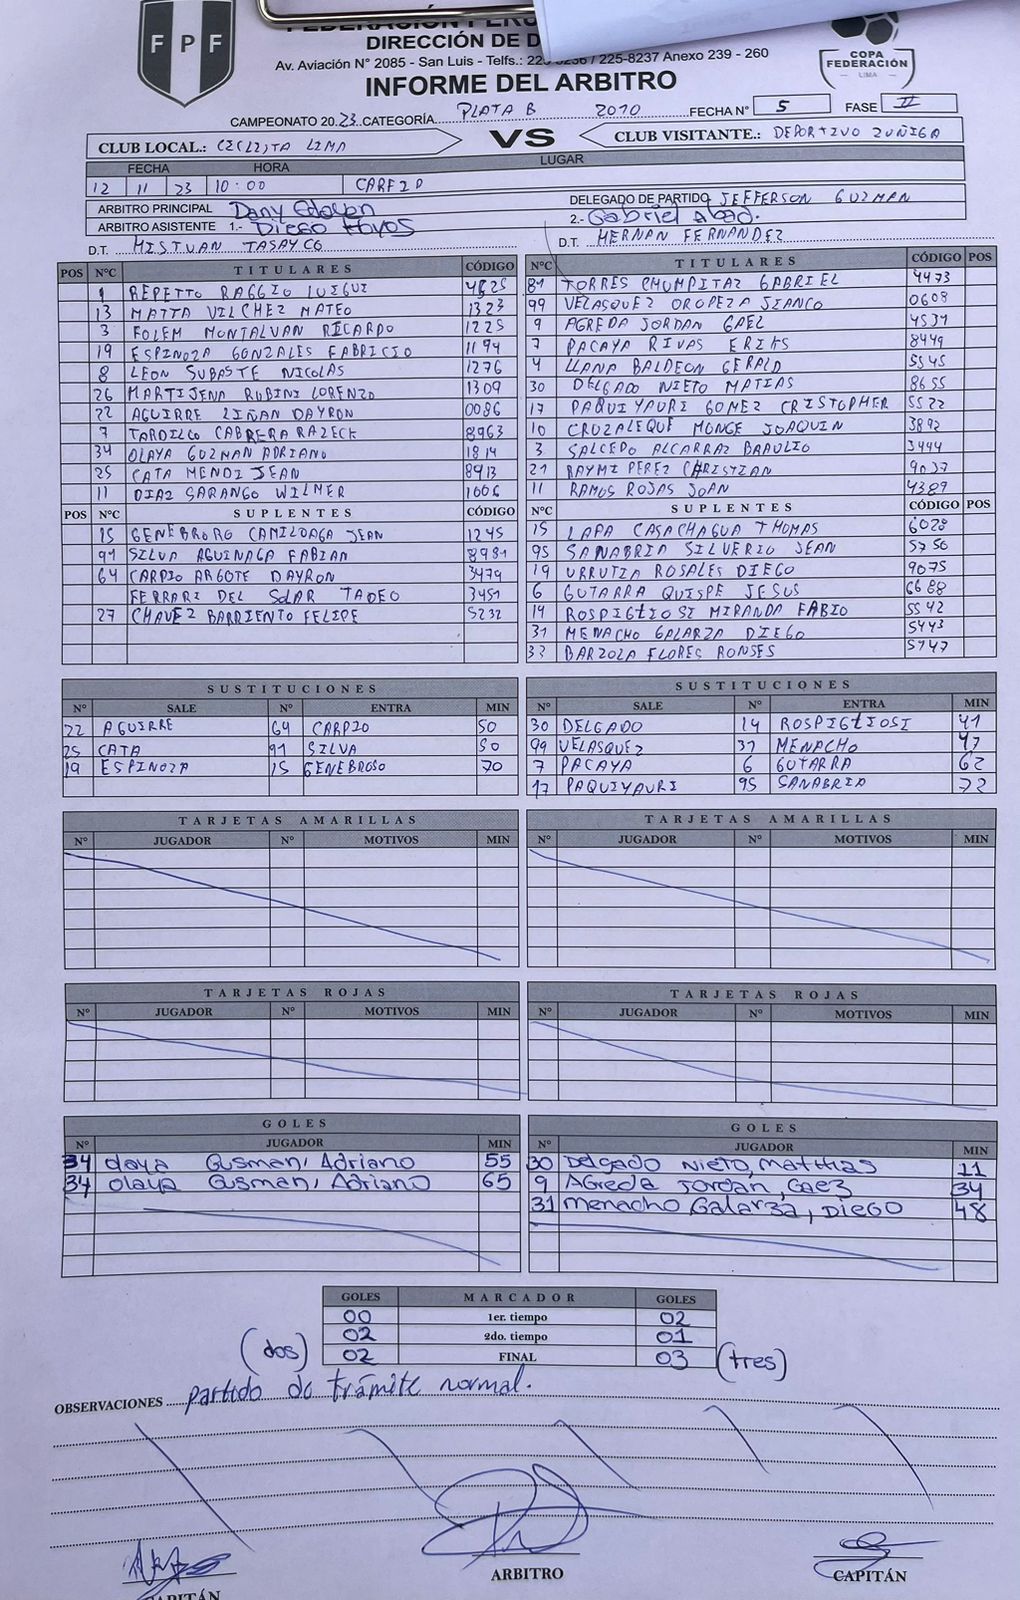 FPF
DIRECCIÓN DE D
Av. Aviación N° 2085 - San Luis - Telfs.: 225-8236 / 225-8237 Anexo 239 - 260
INFORME DEL ARBITRO
COPA FEDERACIÓN LIMA
CAMPEONATO 2023 CATEGORÍA PLATA B 2010 FECHA N° 5 FASE II
CLUB LOCAL.: CICLISTA LIMA VS CLUB VISITANTE.: DEPORTIVO ZUÑIGA
FECHA HORA LUGAR
12 11 23 10:00 CAREZO
ARBITRO PRINCIPAL Dany DELEGADO DE PARTIDO JEFFERSON GUZMAN
ARBITRO ASISTENTE 1.- Diego Hoyos 2.- Gabriel Abad.
D.T. MISTUAN TASAYCO D.T. HERNAN FERNANDEZ
POS N°C TITULARES CÓDIGO N°C TITULARES CÓDIGO POS
1 REPETTO RAGGIO LUIGUI 81 TORRES CHUMPITAZ GABRIEL 4473
13 MATTA VILCHEZ MATEO 1323 99 VELASQUEZ OROPEZA JEANCO 0608
3 FOLEM MONTALVAN RICARDO 1225 9 AGREDA JORDAN GAEL 4531
19 ESPINOZA GONZALES FABRICIO 1194 7 PACAYA RIVAS ERIKS 8449
8 LEON SUBASTE NICOLAS 1276 4 LLANA BALDEON GERALD 5545
26 MARTIJENA RUBINI LORENZO 1309 30 DELGADO NIETO MATIAS 8655
22 AGUIRRE LIÑAN DAYRON 0086 17 PAQUIYAURI GOMEZ CRISTOPHER 5522
7 TARDILCO CABRERA RAZECK 8963 10 CRUZALEQUE MONGE JOAQUIN 3892
34 OLAYA GUZMAN ADRIANO 1814 3 SALCEDO ALCARRAZ BRAULIO 3444
25 CATA MENDI JEAN 8913 21 RAYMI PEREZ CHRISTIAN 9037
11 DIAZ SARANGO WILMER 1006 11 RAMOS ROJAS JOAN 4389
POS N°C SUPLENTES CÓDIGO N°C SUPLENTES CÓDIGO POS
15 GENEBRORO CAMILOAGA JEAN 1245 15 LAPA CASACHAGUA THOMAS 6028
91 SILVA AGUINAGA FABIAN 8981 95 SANABRIA SILVERIO JEAN 5756
64 CARPIO ARGOTE DAYRON 3479 19 URRUTIA ROSALES DIEGO 9075
FERRARI DEL SOLAR TADEO 3451 6 GUTARRA QUISPE JESUS 6688
27 CHAVEZ BARRIENTO FELIPE 5232 14 ROSPIGLIOSI MIRANDA FABIO 5542
31 MENACHO GALARZA DIEGO 5443
33 BARZOLA FLORES RONSES 5747
SUSTITUCIONES SUSTITUCIONES
N° SALE N° ENTRA MIN N° SALE N° ENTRA MIN
22 AGUIRRE 64 CARPIO 50 30 DELGADO 14 ROSPIGLIOSI 41
25 CATA 91 SILVA 50 99 VELASQUEZ 31 MENACHO 47
19 ESPINOZA 15 GENEBROSO 70 7 PACAYA 6 GUTARRA 62
17 PAQUIYAURI 95 SANABRIA 72
TARJETAS AMARILLAS TARJETAS AMARILLAS
N° JUGADOR N° MOTIVOS MIN N° JUGADOR N° MOTIVOS MIN
TARJETAS ROJAS TARJETAS ROJAS
N° JUGADOR N° MOTIVOS MIN N° JUGADOR N° MOTIVOS MIN
GOLES GOLES
N° JUGADOR MIN N° JUGADOR MIN
34 olaya Gusman, Adriano 55 30 Delgado Nieto, Matthias 11
34 olaya Gusman, Adriano 65 9 Agreda Jordan, Gaez 34
31 Menacho Galarza, Diego 48
GOLES MARCADOR GOLES
00 1er. tiempo 02
02 2do. tiempo 01
(dos) 02 FINAL 03 (tres)
OBSERVACIONES partido de trámite normal.
CAPITÁN ARBITRO CAPITÁN